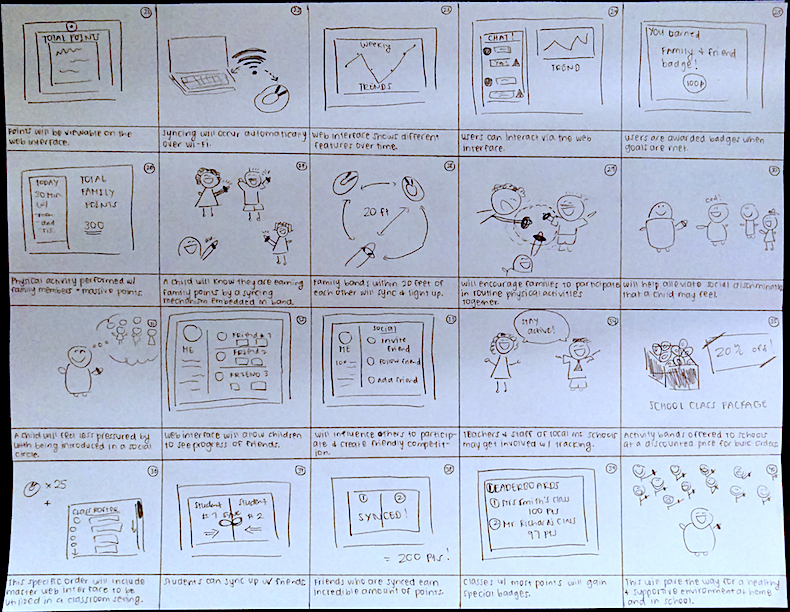 21
TOTAL POINTS
Points will be viewable on the
web interface.
22
Syncing will occur automatically
over Wi-Fi.
23
Weekly
TRENDS
Web interface shows different
features over time.
24
CHAT!
TREND
Users can interact via the web
interface.
25
You earned
Family & friend
badge!
100p
Users are awarded badges when
goals are met.
26
TODAY
30 Min
w/
mom
dad
sis
TOTAL
FAMILY
POINTS
300
Physical activity performed w/
family members = massive points.
27
A child will know they are earning
family points by a syncing
mechanism embedded in band.
28
20 ft
Family bands within 20 feet of
each other will sync & light up.
29
Will encourage families to participate
in routine physical activities
together.
30
Will help alleviate social discrimination
that a child may feel.
31
A child will feel less pressured by
with being introduced in a social
circle.
32
ME
FRIEND 1
FRIEND 2
FRIEND 3
Web interface will allow children
to see progress of friends.
33
ME
Social
Invite
friend
Follow friend
Add friend
Will influence others to particip-
ate & create friendly competit-
ion.
34
STAY
active!
Teachers & staff of local
schools
may get involved w/ tracking.
35
20% off!
SCHOOL CLASS PACKAGE
Activity bands offered to schools
at a discounted price for bulk orders.
36
x 25
+
CLASS ROSTER
This specific order will include
master web interface to be
utilized in a classroom setting.
37
Student
# 1
Student
# 2
Students can sync up w/ friends
38
1 2
SYNCED!
= 200 pts!
Friends who are synced earn
incredible amount of points.
39
LEADERBOARDS
1 Mrs Smith's Class
100 Pts
2 Mr Richard's Class
97 Pts
Classes w/ most points will gain
special badges.
40
This will pave the way for a healthy
& supportive environment at home
and in school.